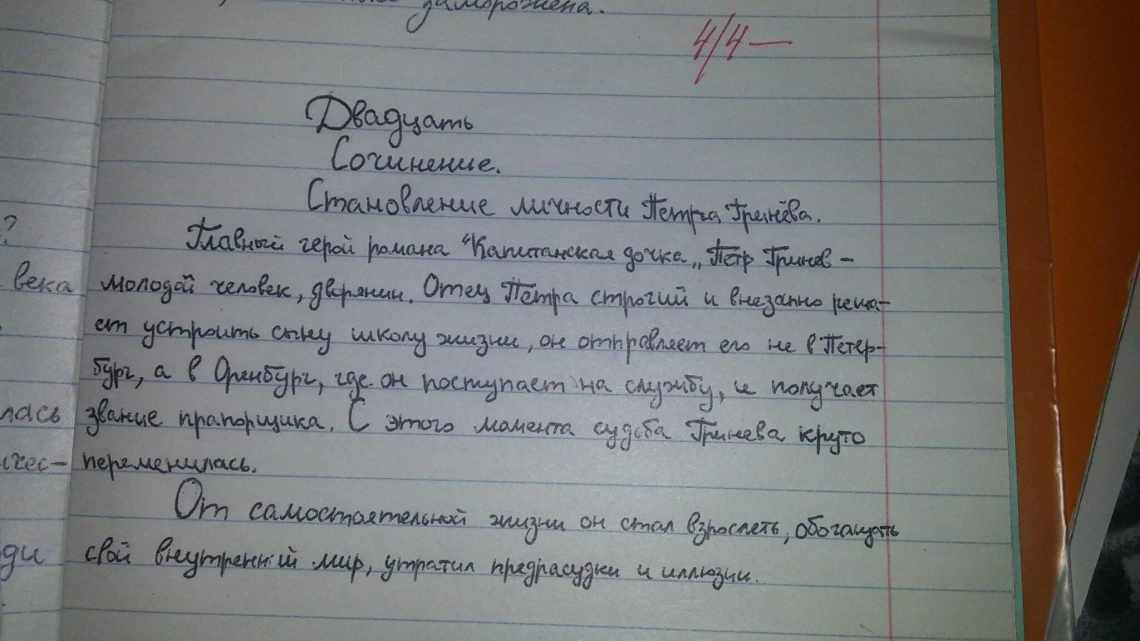 заморожена.
4/4—
Двадцать
Сочинение.
Становление личности Петра Гринёва.
?
Главный герой романа "Капитанская дочка„ Пётр Гринёв –
века молодой человек, дворянин. Отец Петра строгий и внезапно реша-
ет устроить сыну школу жизни, он отправляет его не в Петер-
бург, а в Оренбург, где он поступает на службу, и получает
лась звание прапорщика. С этого момента судьба Гринева круто
чес- переменилась.
От самостоятельной жизни он стал взрослеть, обогащать
ди свой внутренний мир, утратил предрасудки и иллюзии.